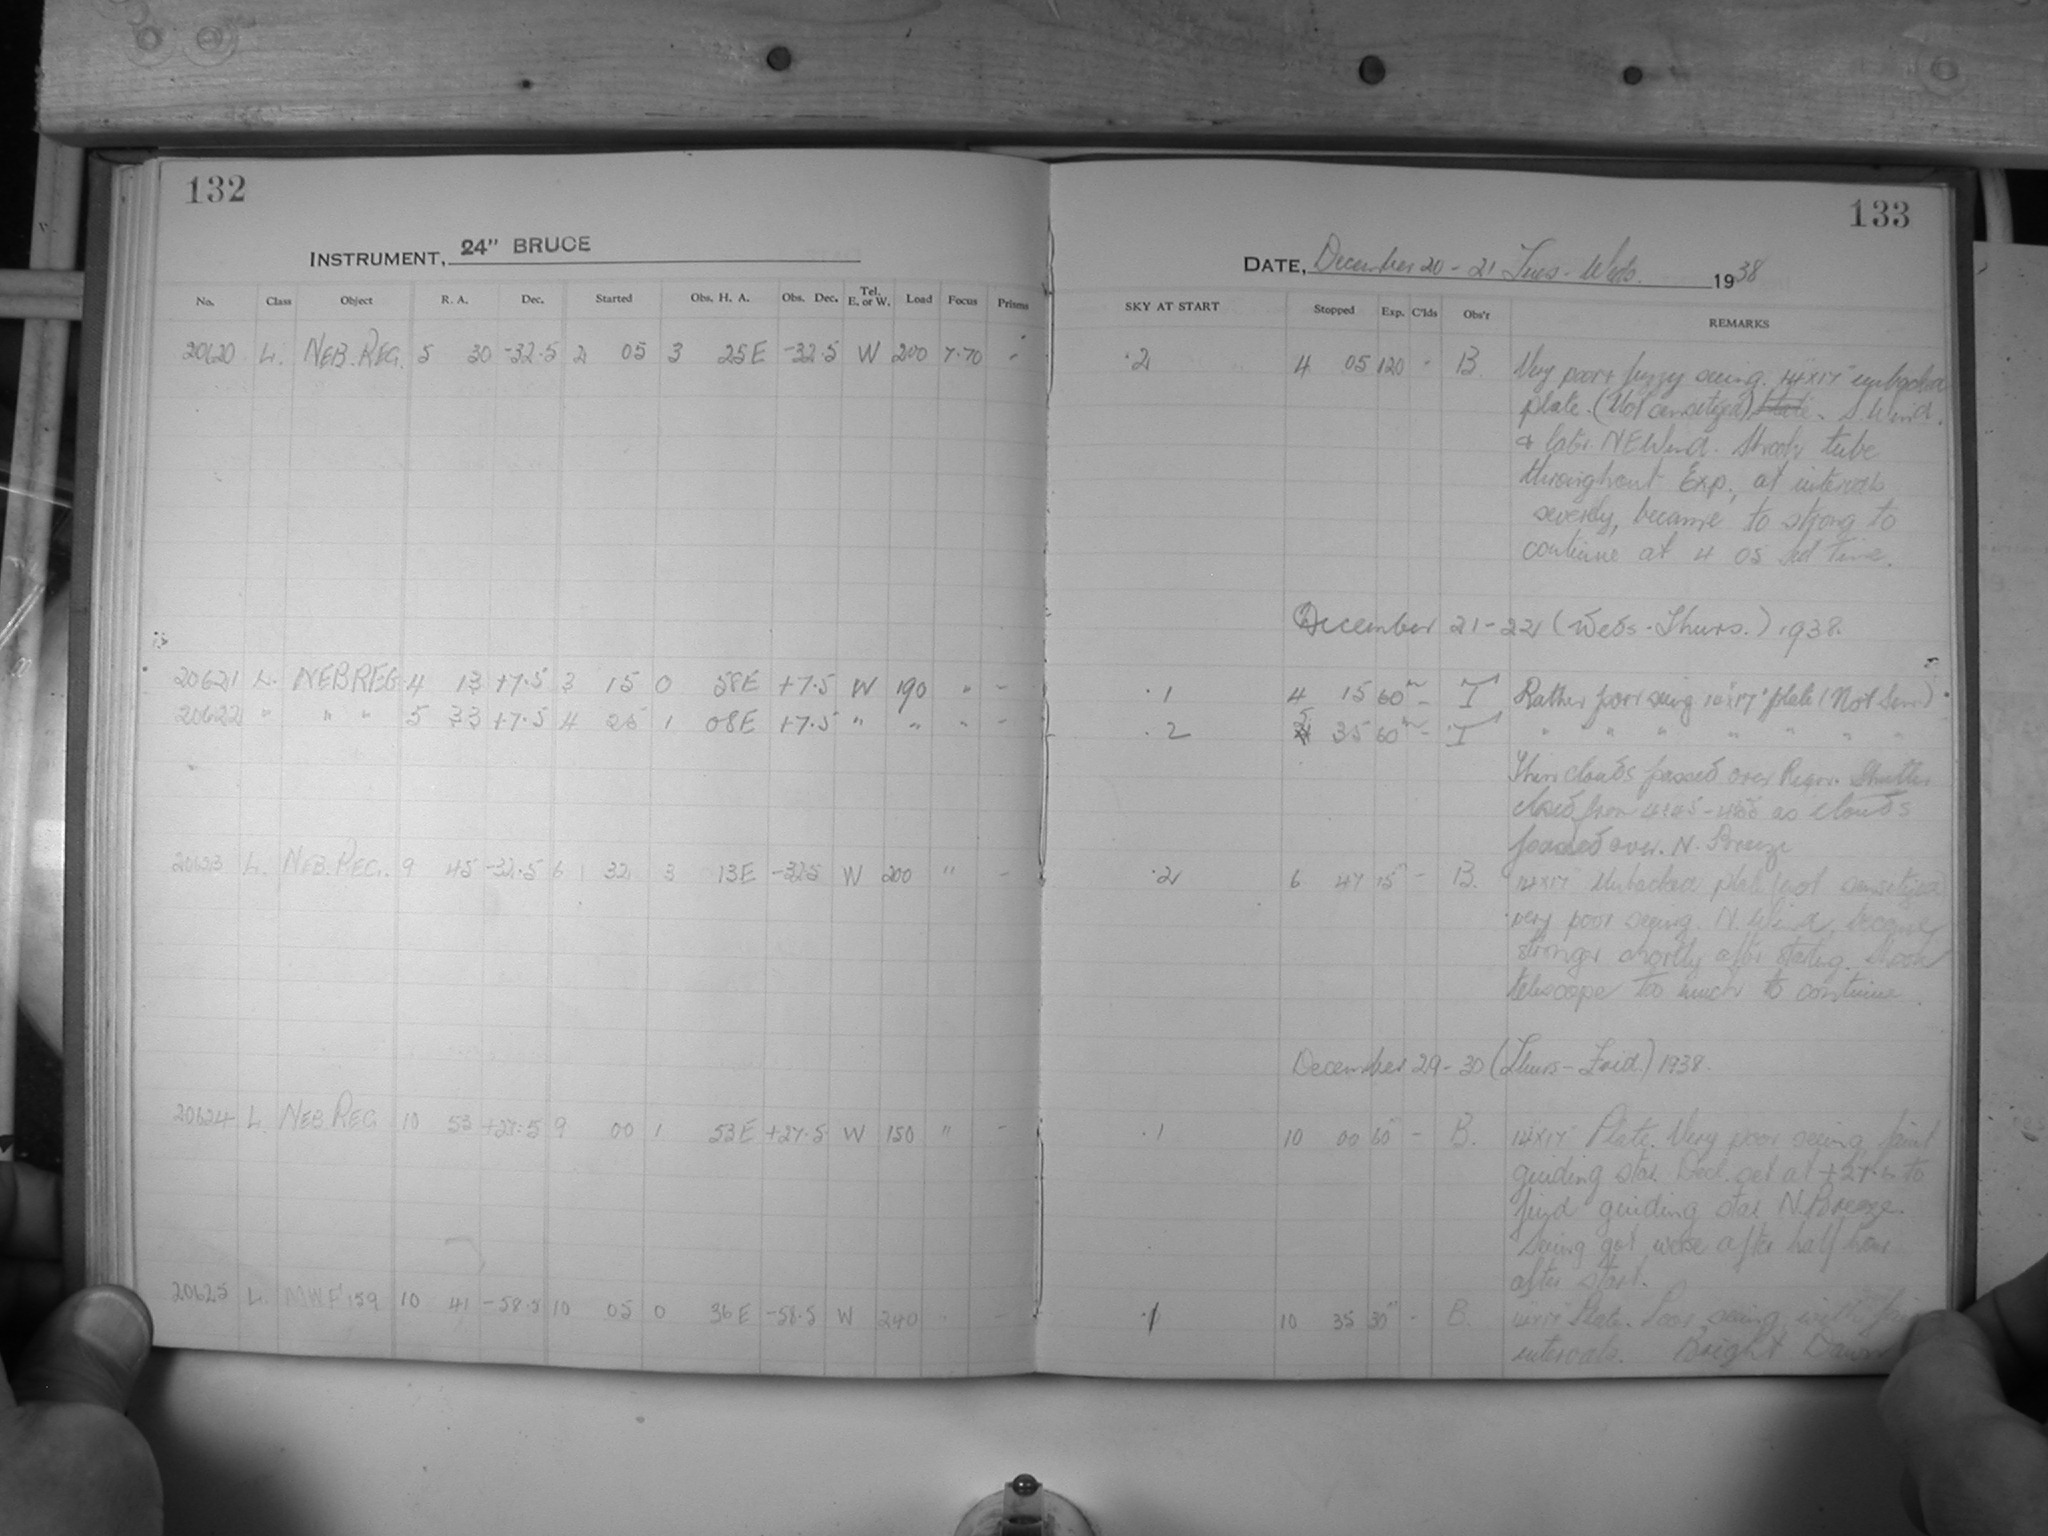 132
INSTRUMENT, 24" BRUCE
No. Class Object R. A. Dec. Started Obs. H. A. Obs. Dec. Tel. E. or W. Load Focus Prisms
20620 L. NEB. REG. 5 30 -32.5 2 05 3 25E -32.5 W 200 7.70 -
20621 L. NEB REG 4 13 +7.5 3 15 0 58E +7.5 W 190 " -
20622 " " " 5 33 +7.5 4 25 1 08E +7.5 " " " -
20623 L. NEB. REG. 9 45 -32.5 6 32 3 13E -32.5 W 200 " -
20624 L. NEB REG 10 53 +27.5 9 00 1 53E +27.5 W 150 " -
20625 L. MWF 159 10 41 -58.5 10 05 0 36E -58.5 W 240
133
DATE, December 20 - 21 Tues - Weds. 1938
SKY AT START Stopped Exp. C'lds Obs'r REMARKS
.2 4 05 120 - B. Very poor + fuzzy seeing. 14x17"
plate. (Not sensitized) S Wind.
& later NE Wind. Shook tube
throughout Exp., at intervals
severely, became to strong to
continue at 4 05 Sid Time.
December 21-22 (Weds - Thurs.) 1938.
.1 4 15 60m - T Rather poor seeing plate (Not Sen.)
.2 5 35 60m - T " " " " " " "
Thin clouds passed over Region. Shutter
closed from as clouds
passed over. N. Breeze
.2 6 47 15m - B. 14x17" Unbacked plate (not sensitized
very poor seeing. N. Wind, became
stronger shortly after starting. Shook
telescope too much to continue.
December 29-30 (Thurs - Frid.) 1938.
.1 10 00 60m - B. 14x17" Plate. Very poor seeing, faint
guiding star. Decl. set at to
find guiding star N. Breeze.
Seeing got worse after half hour
after start.
.1 10 35 30m - B. 14x17" Plate. Poor seeing with
intervals. Bright Dawn